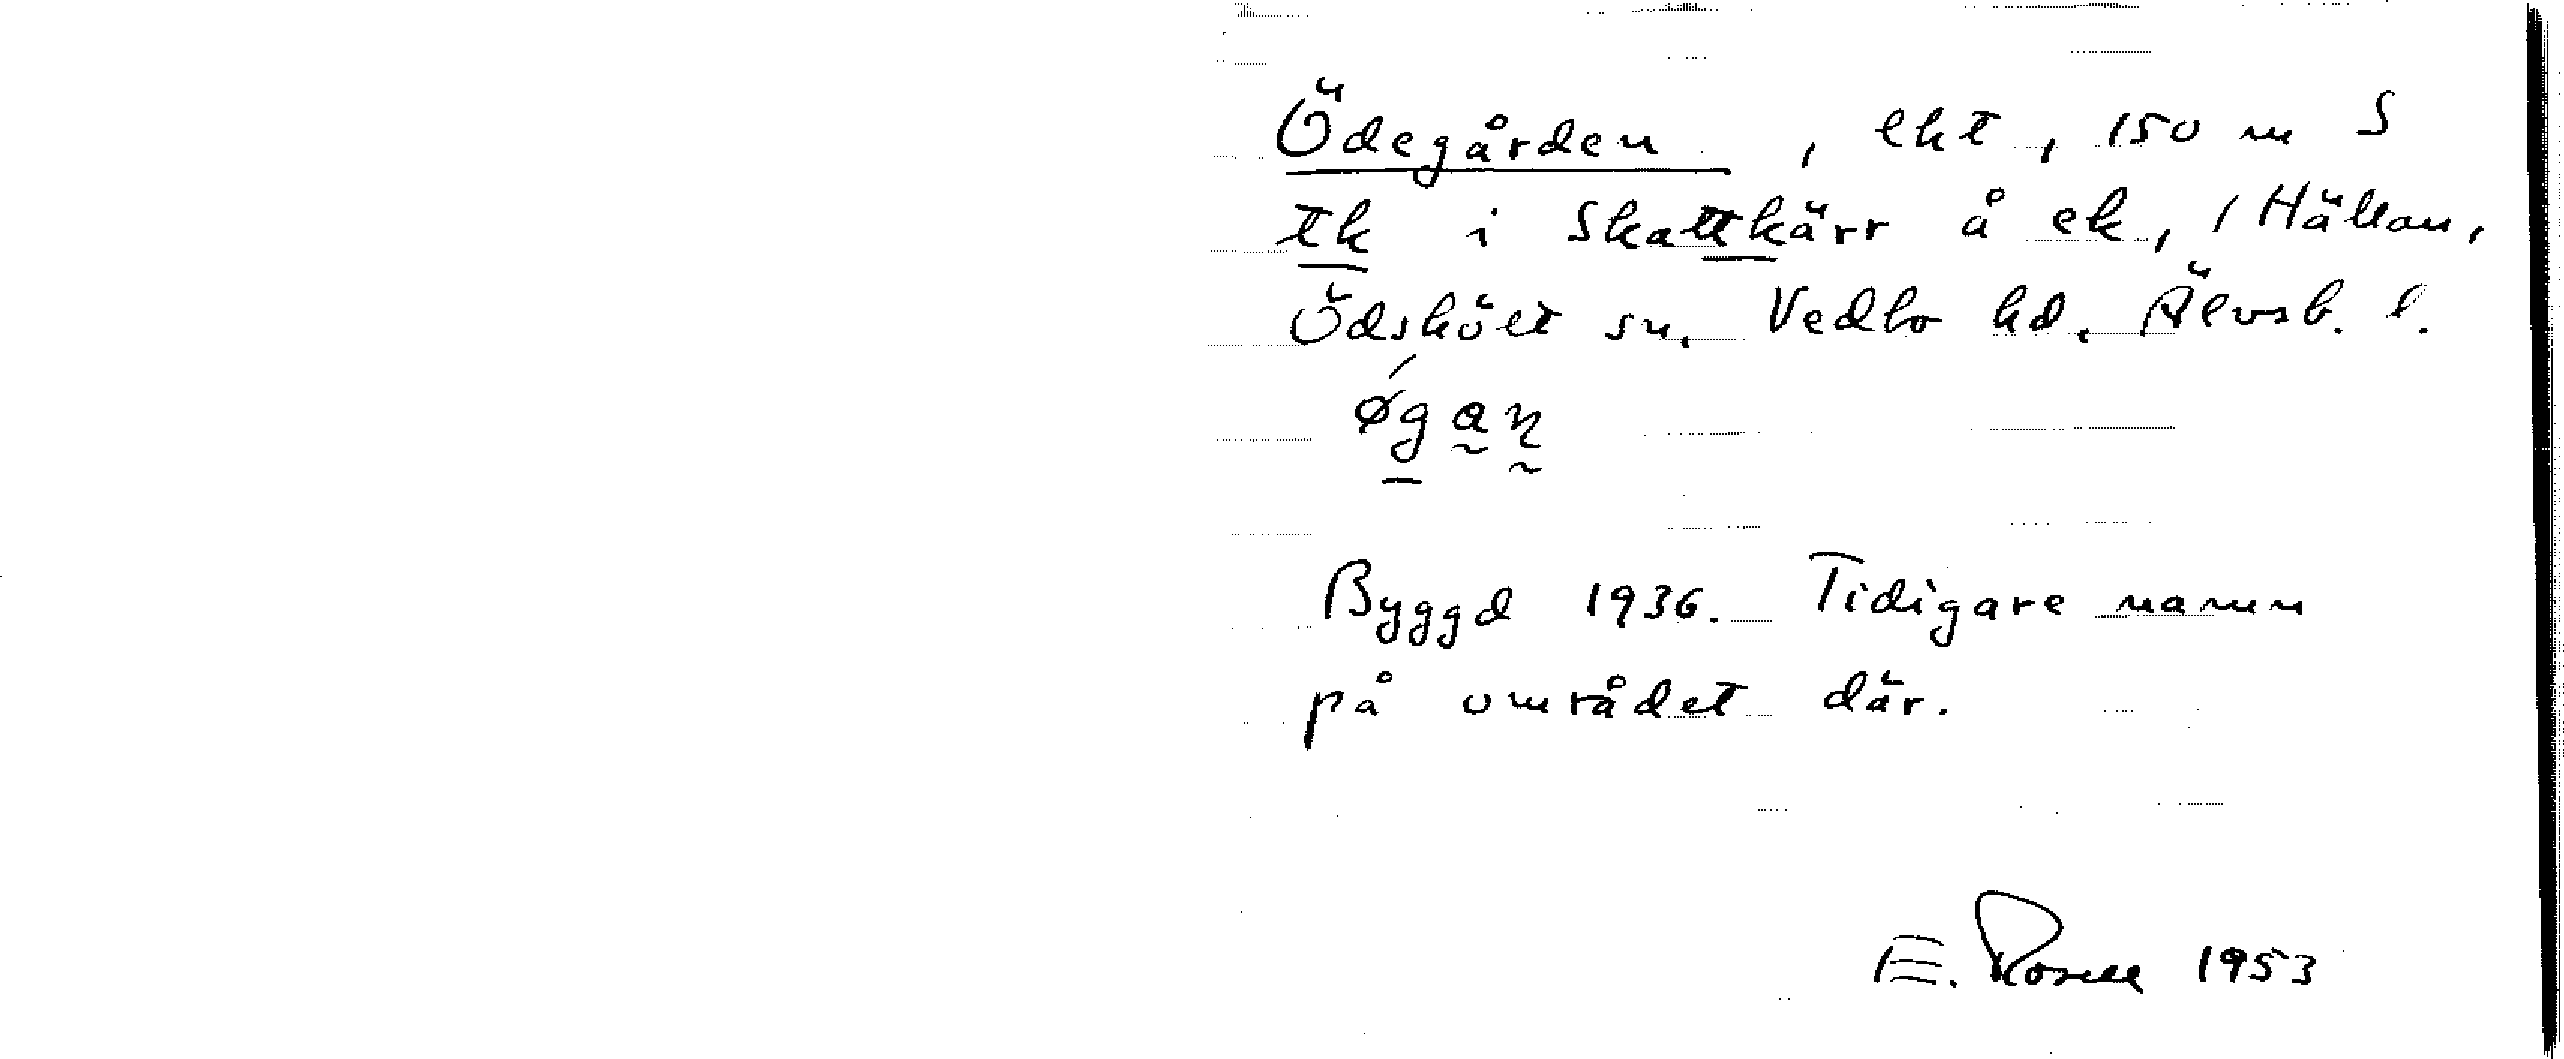 Ödegården, lht, 150 m S
tk i Skattkärr å ek, 1 Hällan,
Ödskölt sn, Vedbo hd. Älvsb. l.
øgan
Byggd 1936. Tidigare namn
på området där.
E. Rosell 1953